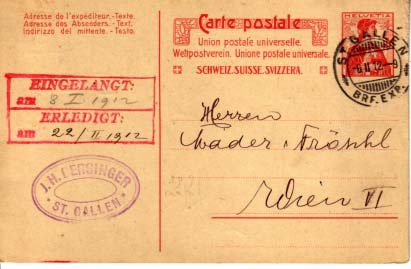 Adresse de l'expéditeur.-Texte.
Adresse des Absenders.-Text.
Indirizzo del mittente.-Testo.
Carte postale
Union postale universelle.
Weltpostverein. Unione postale universale.
SCHWEIZ. SUISSE. SVIZZERA.
HELVETIA
ST. GALLEN
BRF. EXP.
EINGELANGT:
am 8 I 1912
ERLEDIGT:
am 22/II 1912
J. H. BERSINGER
ST. GALLEN
Herren
Mader Fröschl
Wien VI